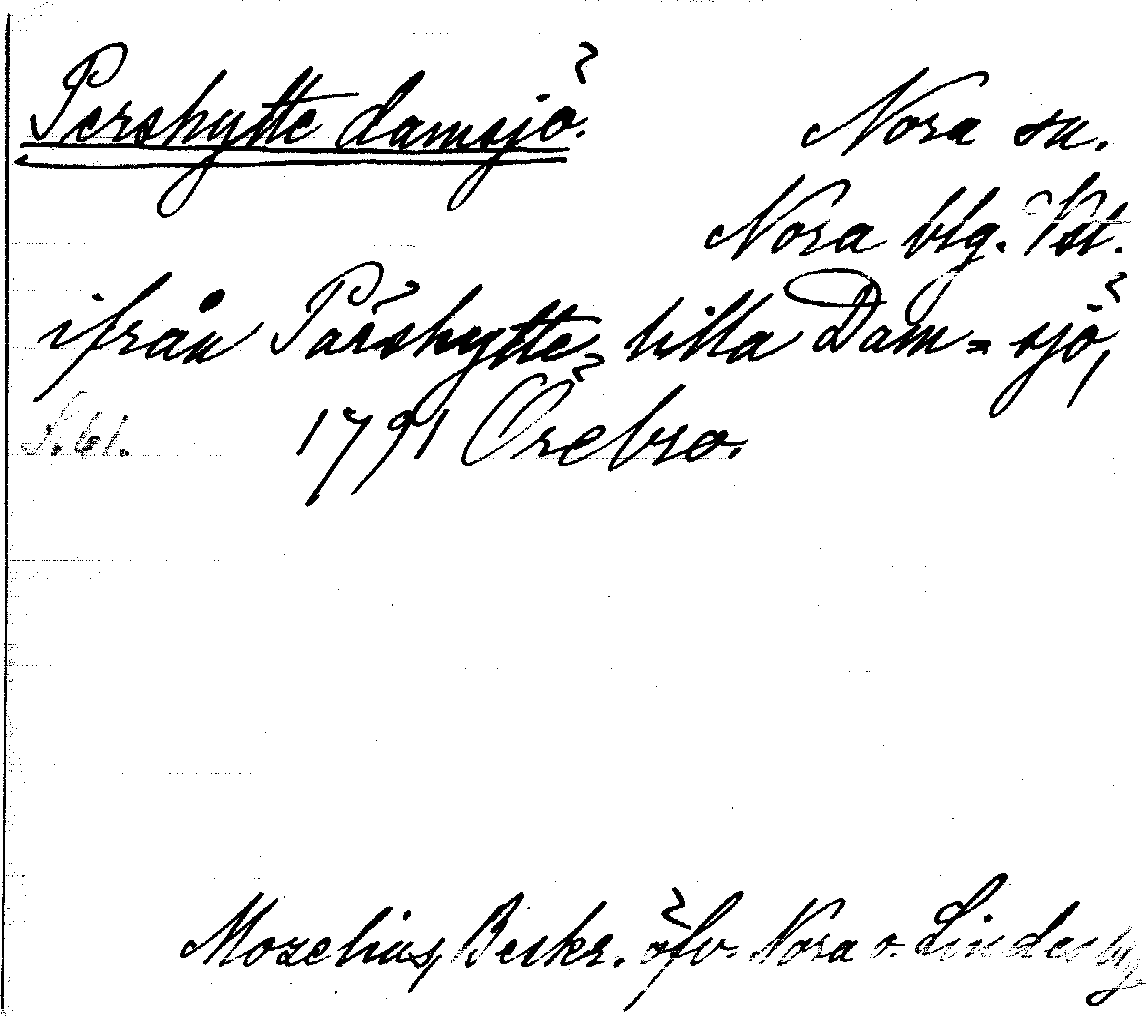 Pershytte damsjö.
Nora sn.
Nora blg. Vst.
ifrån Pärshytte- lilla Dam=sjö,
S. 61. 1791 Örebro.
Mozelius, Beskr. öfv. Nora o. Lindes blg